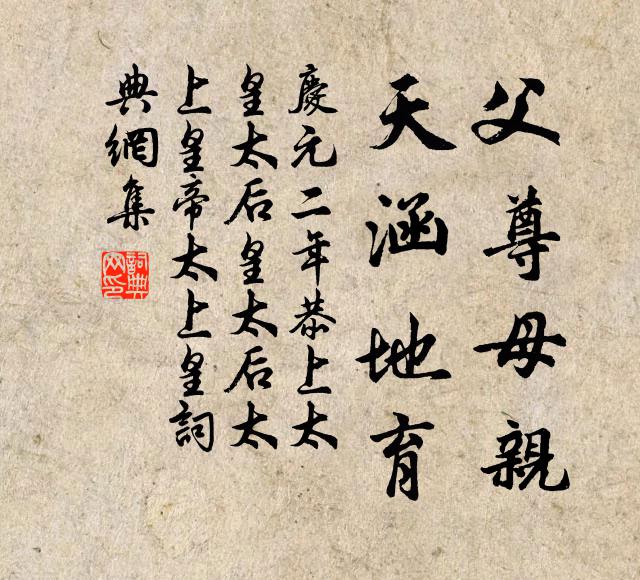 父尊母親
天涵地育
慶元二年恭上太
皇太后皇太后太
上皇帝太上皇詞
典網集
詞典
网印